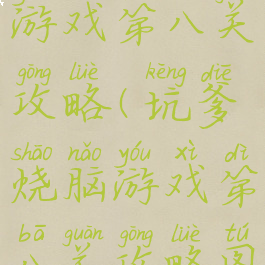 游戏第八关
gōng lüè kēng diē
攻略(坑爹
shāo nǎo yóu xì dì
烧脑游戏第
bā guān gōng lüè tú
八关攻略图